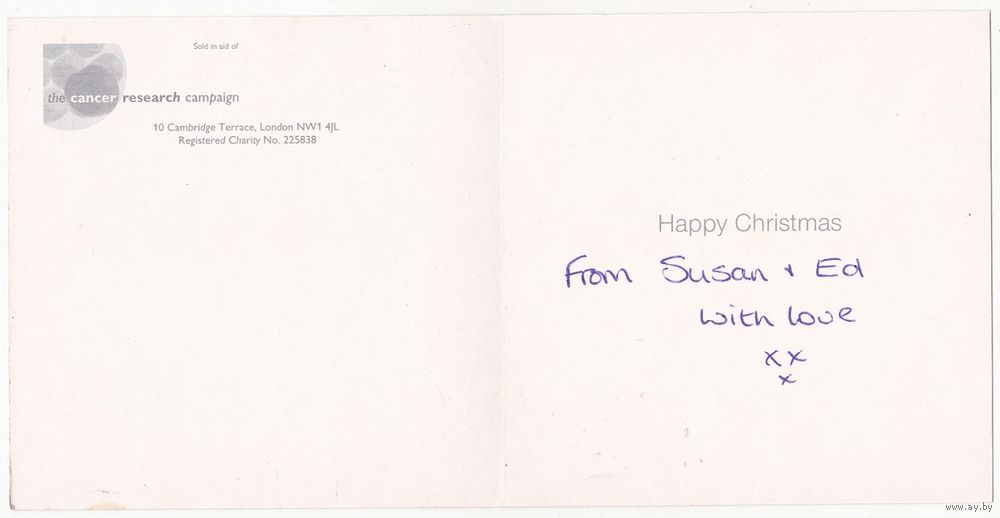 Sold in aid of
the cancer research campaign
10 Cambridge Terrace, London NW1 4JL
Registered Charity No. 225838
Happy Christmas
From Susan + Ed
with love
xx
x
www.ay.by